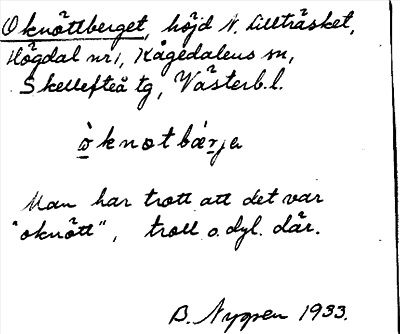 Oknöttberget, höjd N. Lillträsket,
Högdal nr 1, Kågedalens sn,
Skellefteå tg, Västerb.l.
ò̱knotbæṟjə
Man har trott att det var
"oknött", troll o.dyl. där.
B. Nygren 1933.